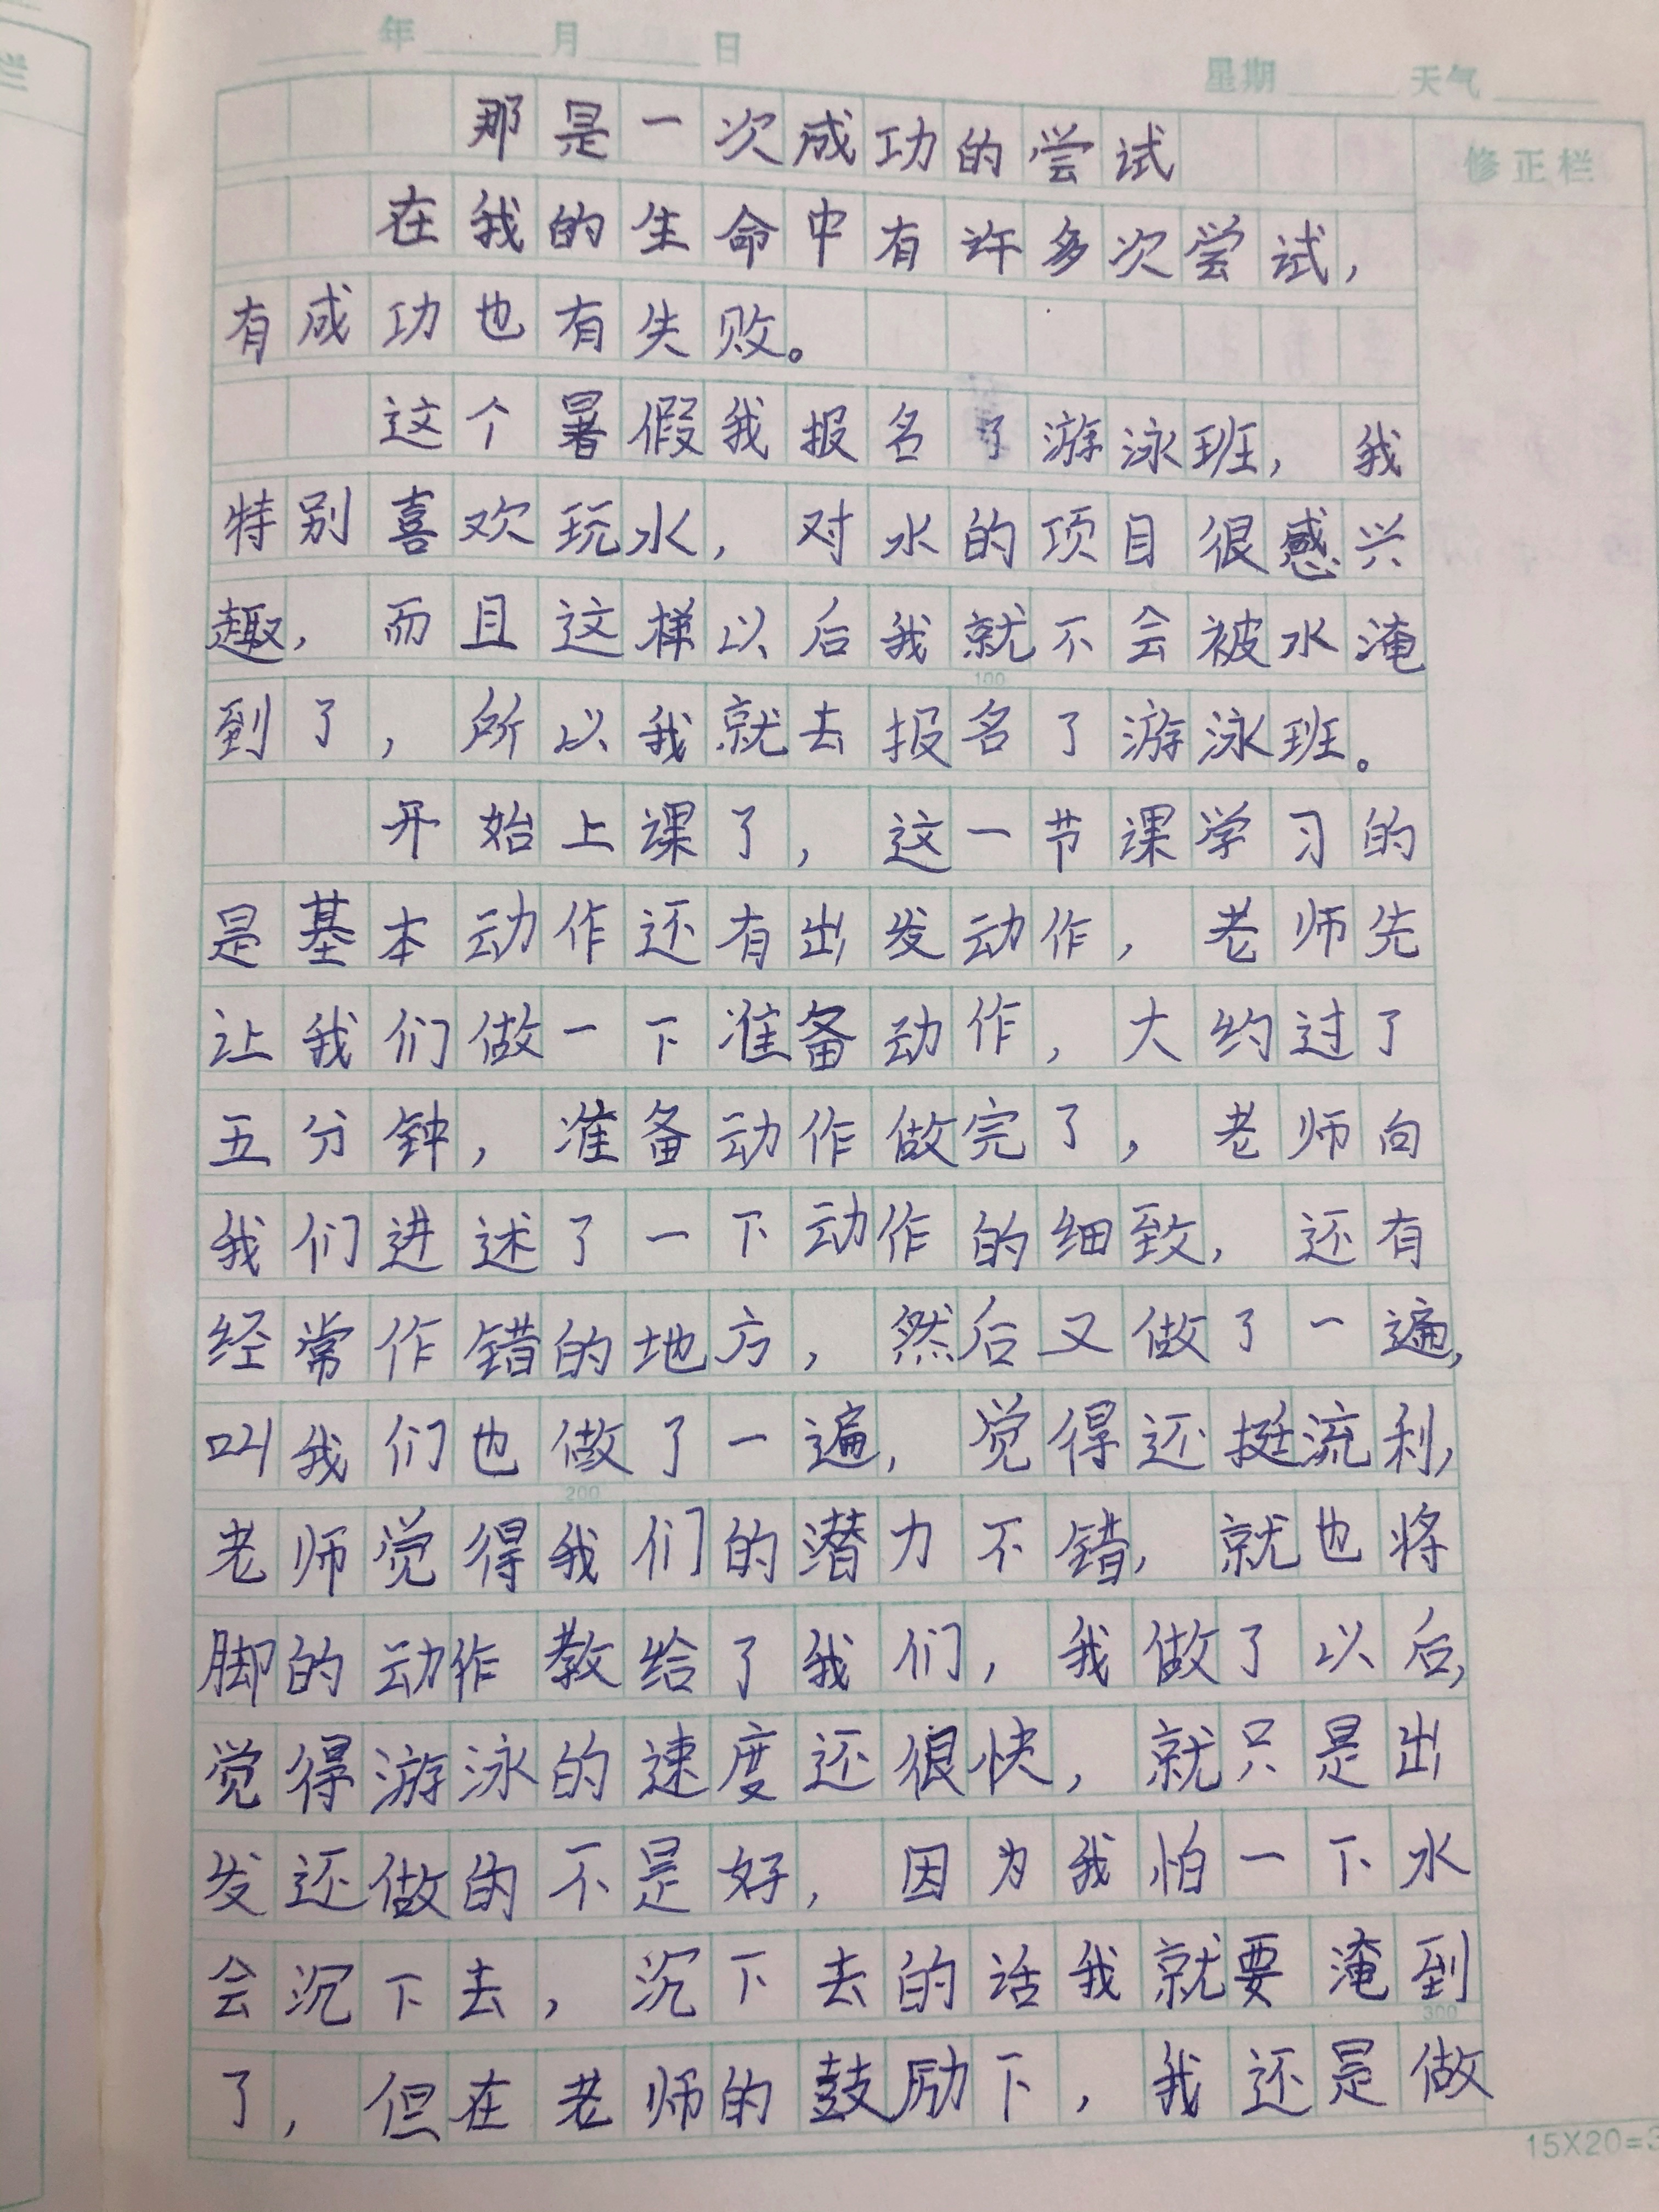 年 月 日
星期 天气
修正栏
那是一次成功的尝试
在我的生命中有许多次尝试，
有成功也有失败。
这个暑假我报名了游泳班，我
特别喜欢玩水，对水的项目很感兴
趣，而且这样以后我就不会被水淹
100
到了，所以我就去报名了游泳班。
开始上课了，这一节课学习的
是基本动作还有出发动作，老师先
让我们做一下准备动作，大约过了
五分钟，准备动作做完了，老师向
我们进述了一下动作的细致，还有
经常作错的地方，然后又做了一遍，
叫我们也做了一遍，觉得还挺流利，
200
老师觉得我们的潜力不错，就也将
脚的动作教给了我们，我做了以后，
觉得游泳的速度还很快，就只是出
发还做的不是好，因为我怕一下水
会沉下去，沉下去的话我就要淹到
300
了，但在老师的鼓励下，我还是做
15X20=3